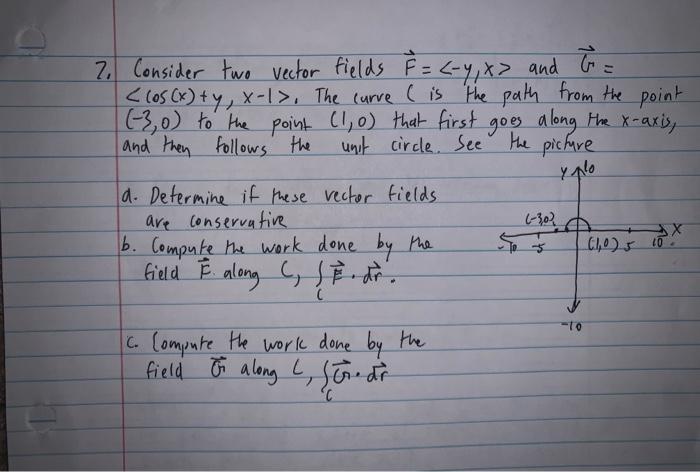 7. Consider two vector fields F = <-y, x> and G =
<cos(x)+y, x-1>. The curve C is the path from the point
(-3,0) to the point (1,0) that first goes along the x-axis,
and then follows the unit circle. See the picture
y 10
a. Determine if these vector fields
are conservative
(-3,0)
x
-10 -5 (1,0) 5 10
b. Compute the work done by the
field F along C, ∫_C F · dr.
-10
c. Compute the work done by the
field G along C, ∫_C G · dr